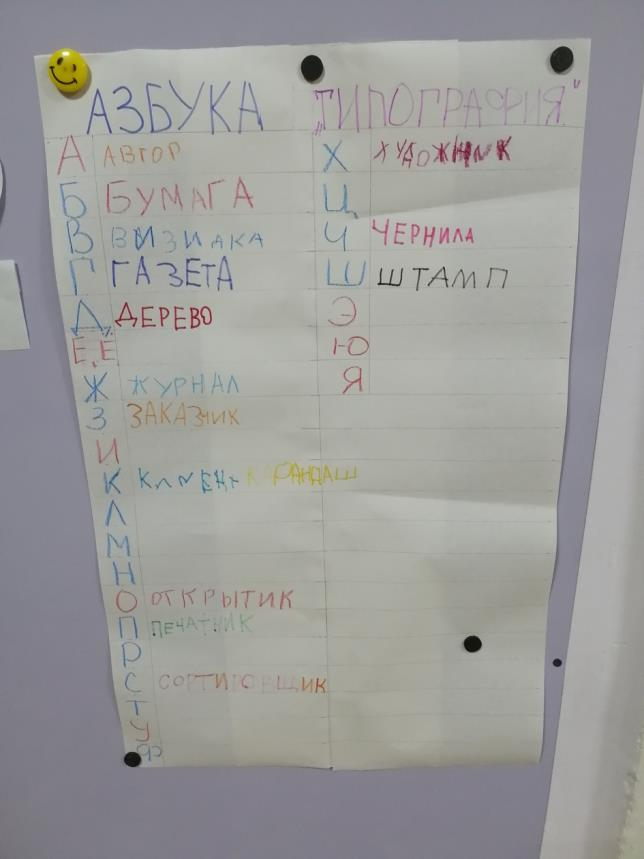 АЗБУКА „ТИПОГРАФИЯ"
А АВТОР
Б БУМАГА
В ВИЗИАКА
Г ГАЗЕТА
Д ДЕРЕВО
Е, Ё
Ж ЖУРНАЛ
З ЗАКАЗЧИК
И
К КЛИЕНТ КАРАНДАШ
Л
М
Н
О ОТКРЫТИК
П ПЕЧАТНИК
Р
С СОРТИРОВЩИК
Т
У
Ф
Х ХУДОЖНИК
Ц
Ч ЧЕРНИЛА
Ш ШТАМП
Э
Ю
Я